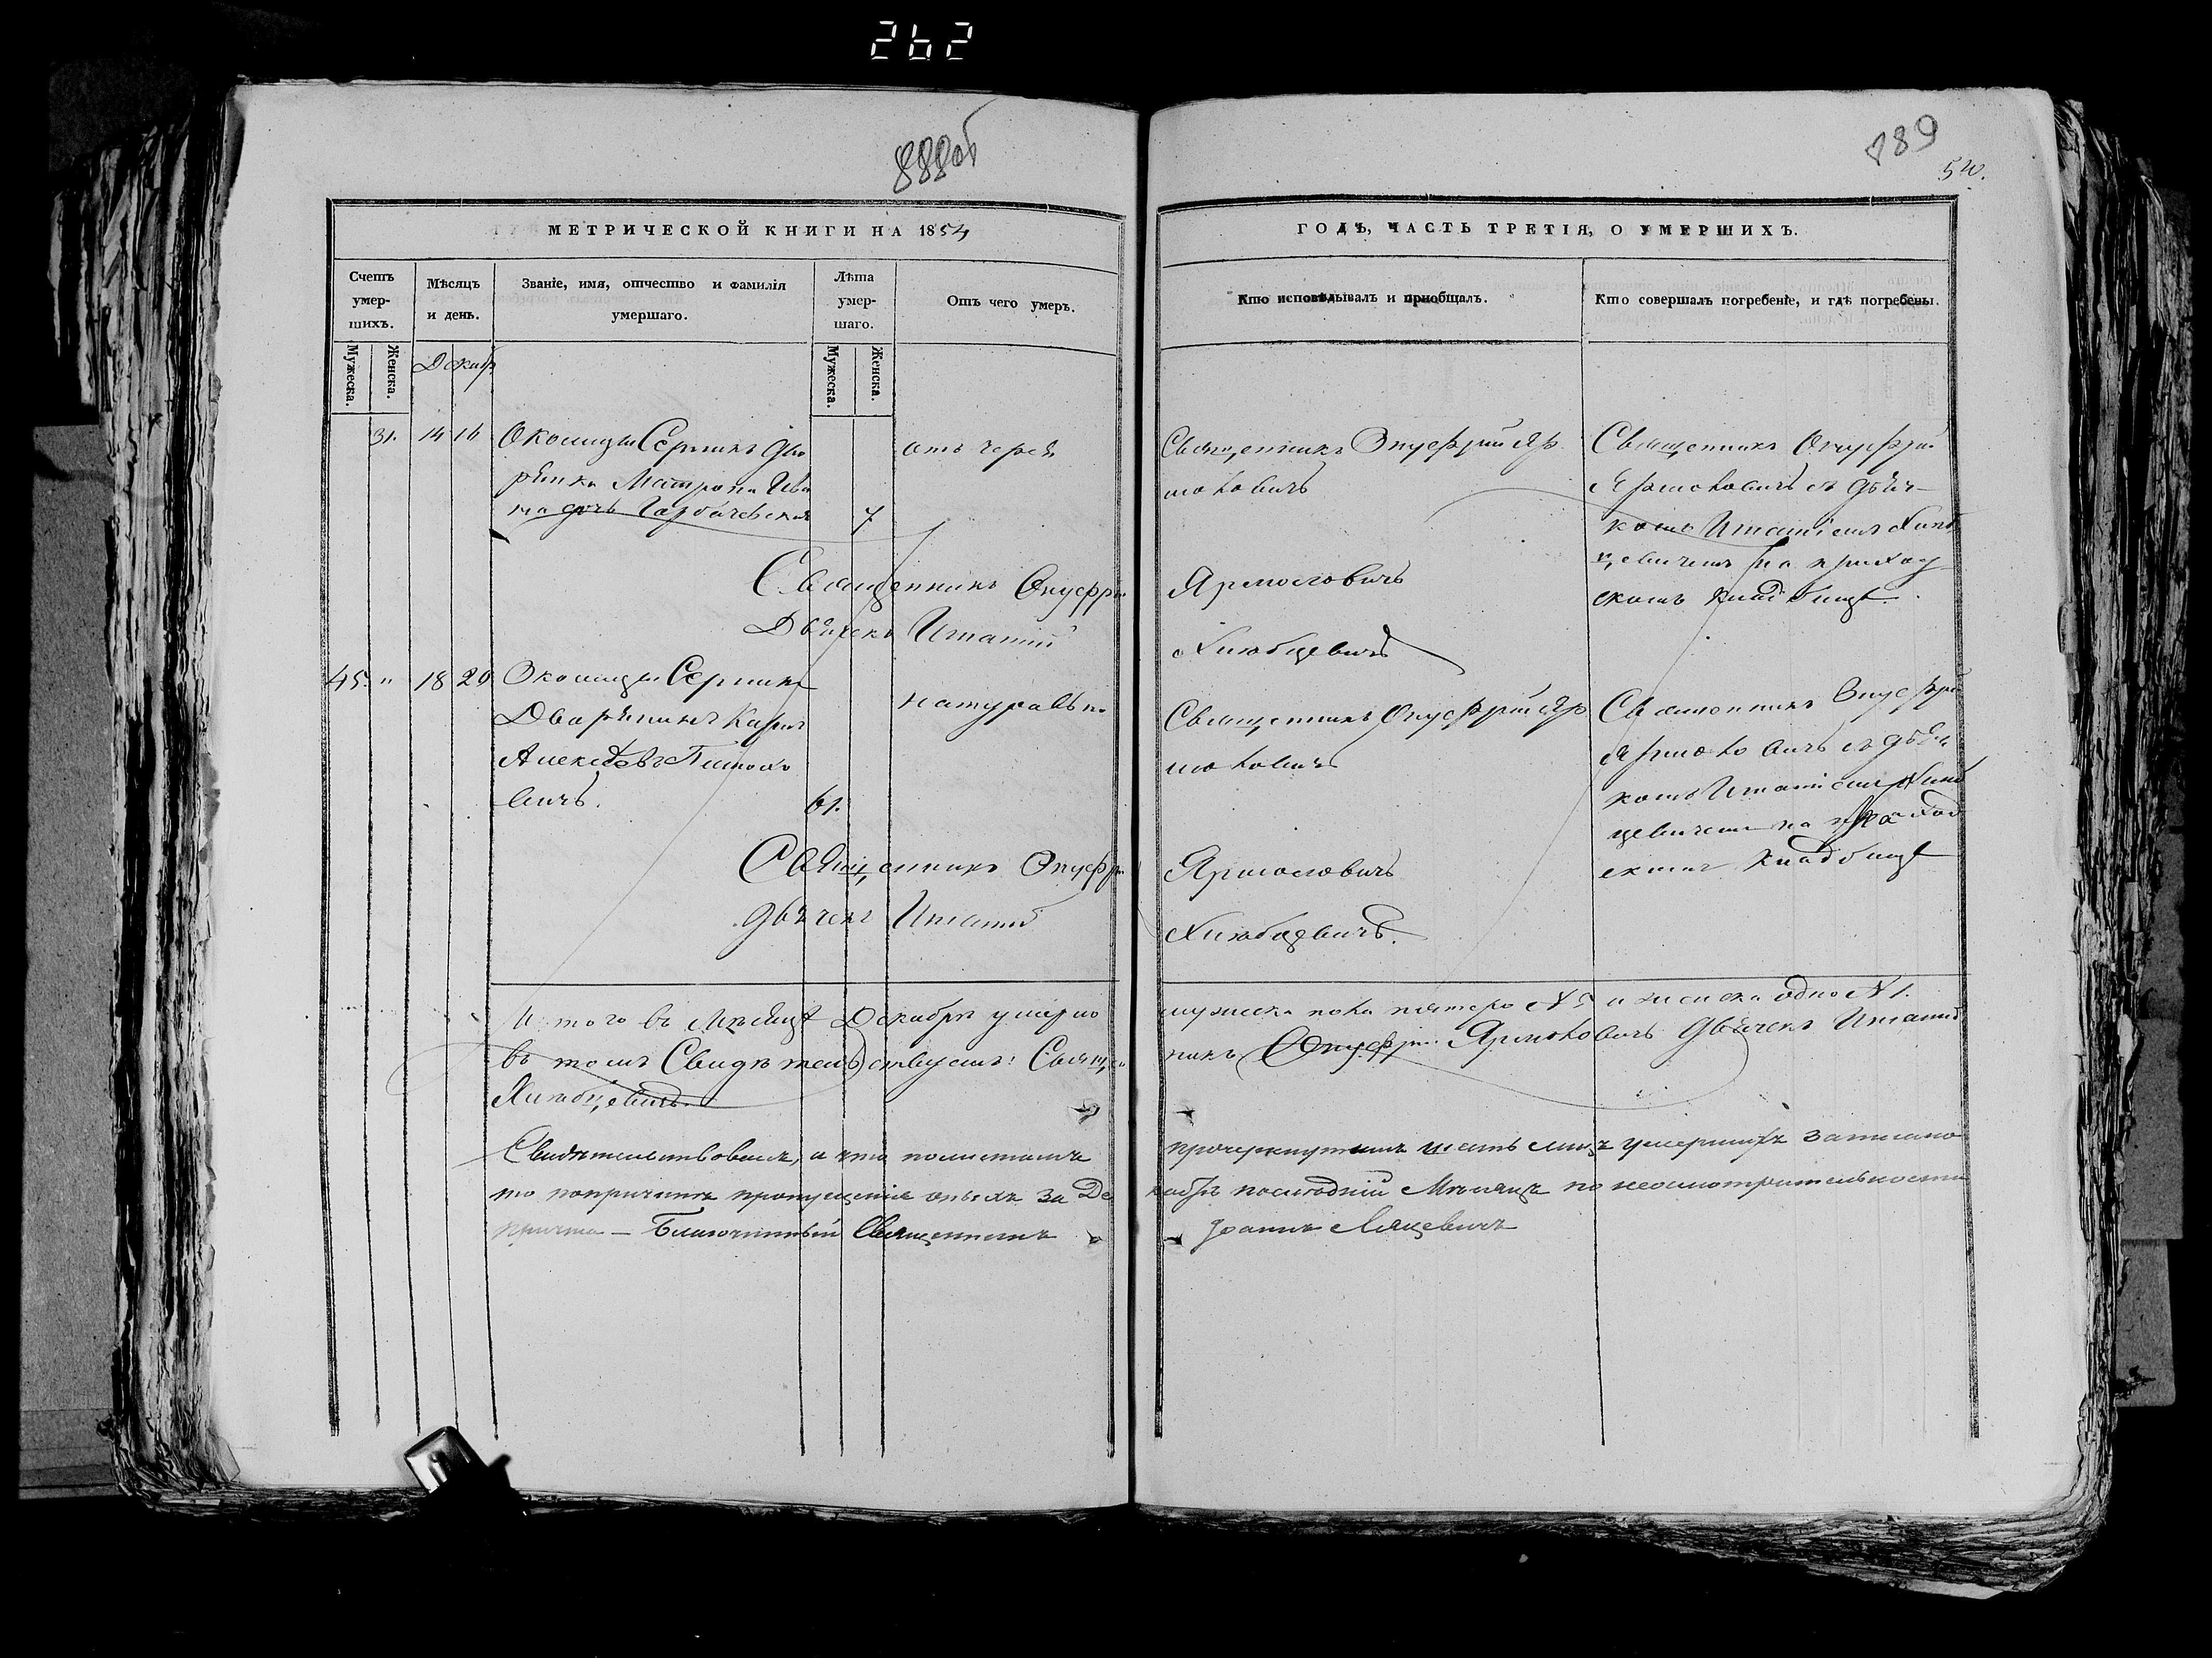 262
888об
889
54.
МЕТРИЧЕСКОЙ КНИГИ НА 1854
ГОДЪ, ЧАСТЬ ТРЕТІЯ, О УМЕРШИХЪ.
Счетъ умер-шихъ.
Мужеска.
Женска.
Мѣсяцъ и день.
Званіе, имя, отчество и фамилія умершаго.
Лѣта умер-шаго.
Мужеска.
Женска.
Отъ чего умеръ.
Кто исповѣдывалъ и пріобщалъ.
Кто совершалъ погребеніе, и гдѣ погребены.
Декабр
31. 14 16
Околицы Серники Дво
рянка Матрона Ива
на дочь
7
отъ
Священникъ Онуфрий Яр
моловичъ
Священникъ Онуфрий
Ярмоловичъ съ дьяч-
комъ Игнатіемъ
на приход
скомъ кладбищѣ.
Священникъ Онуфри
Ярмоловичъ
Дьячекъ Игнатий
45. " 18 20
Околицы Серники
Дворянинъ Карпъ
Алексѣевъ
вичъ.
61.
натурально
Священникъ Онуфрий Яр
моловичъ
Священникъ Онуфри
Ярмоловичъ съ дьяч
комъ Игнатіемъ
цевичемъ на приход
скомъ кладбищѣ
Священникъ Онуфри
Ярмоловичъ
дьячекъ Игнатий
Итого въ Мѣсяцѣ Декабрѣ умерло
мужеска пола пятеро №5 и женска одно №1.
въ томъ Свидѣтельствуемъ: Священ
никъ Онуфри Ярмоловичъ Дьячекъ Игнатий
Свидѣтельствовалъ, и что
прочеркнутыми шесть лицъ умершихъ записано
то попричинѣ пропущенія оныхъ за Де
кабрь послѣдній Мѣсяцъ по неосмотрительности
причта — Благочинный Священникъ
Іоаннъ Ляцевичъ